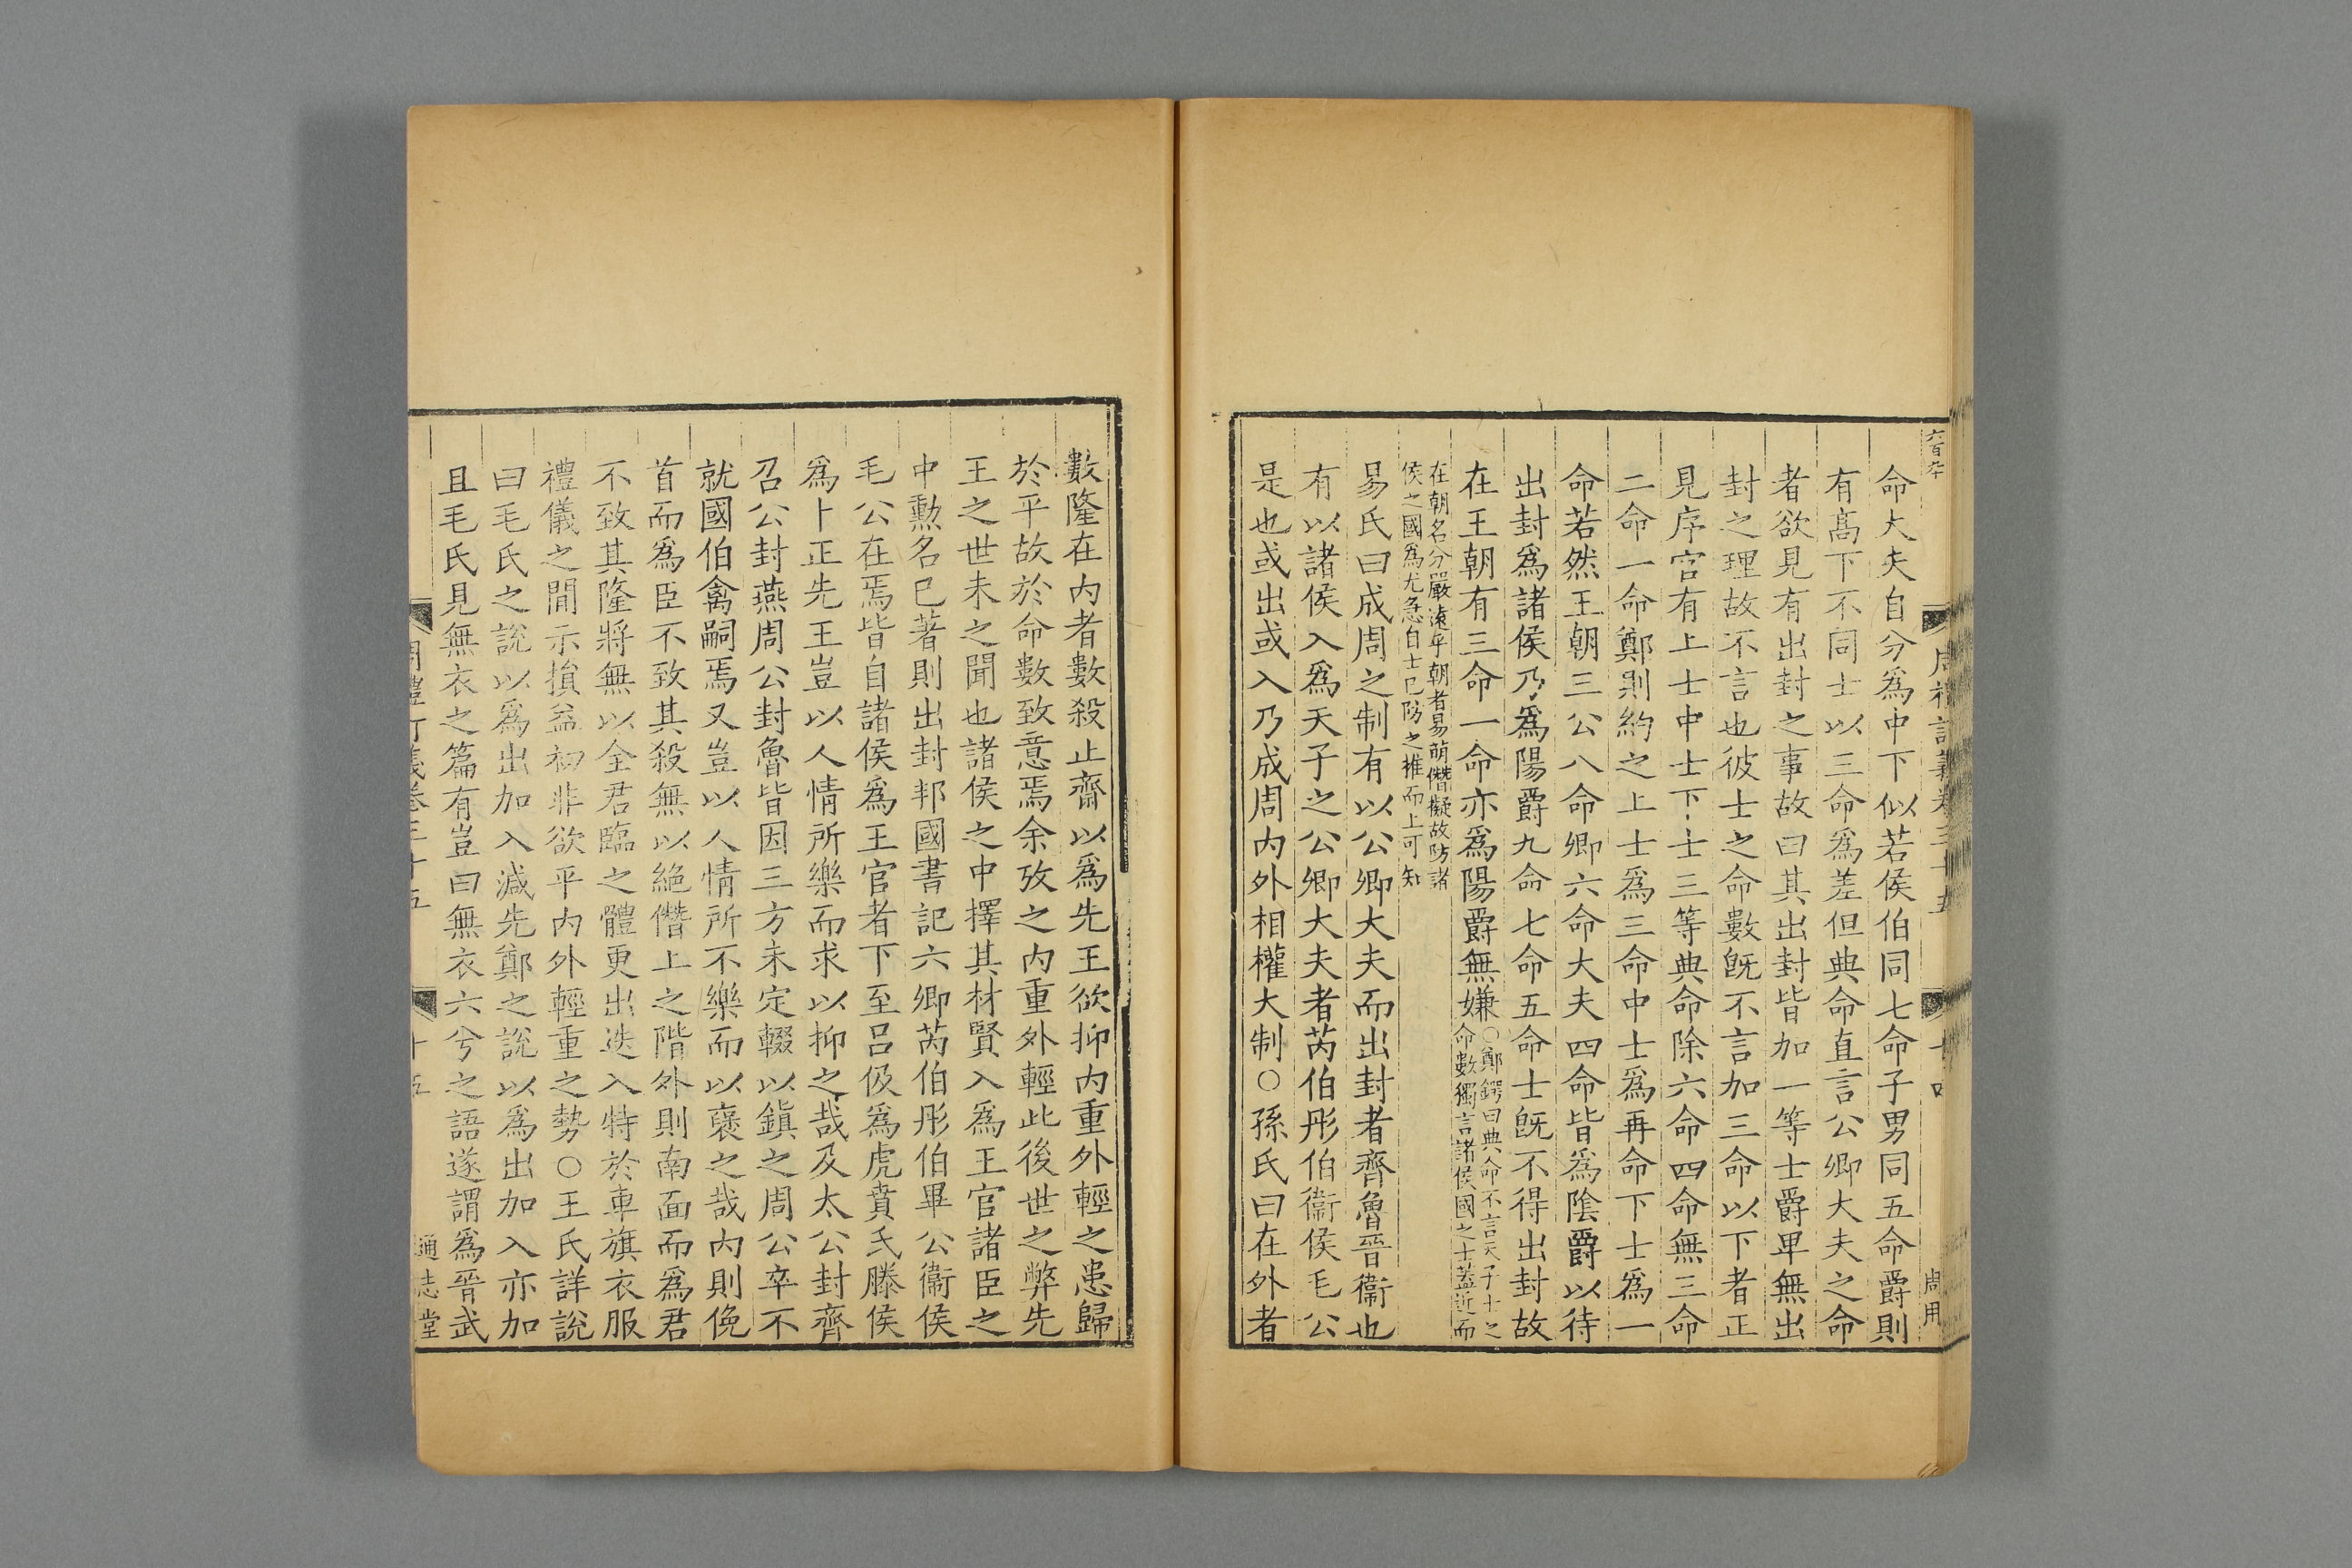 六百卆
周禮訂義卷三十五
十四
周用
命大夫自分爲中下似若侯伯同七命子男同五命爵則
有高下不同士以三命爲差但典命直言公卿大夫之命
者欲見有出封之事故曰其出封皆加一等士爵卑無出
封之理故不言也彼士之命數旣不言加三命以下者正
見序官有上士中士下士三等典命除六命四命無三命
二命一命鄭則約之上士爲三命中士爲再命下士爲一
命若然王朝三公八命卿六命大夫四命皆爲陰爵以待
出封爲諸侯乃爲陽爵九命七命五命士旣不得出封故
在王朝有三命一命亦爲陽爵無嫌
○鄭鍔曰典命不言天子士之
命數獨言諸侯國之士蓋近而
在朝名分嚴遠乎朝者易萌僭擬故防諸
侯之國爲尤急自士已防之推而上可知
易氏曰成周之制有以公卿大夫而出封者齊魯晉衞也
有以諸侯入爲天子之公卿大夫者芮伯彤伯衞侯毛公
是也或出或入乃成周内外相權大制○孫氏曰在外者
數隆在内者數殺止齋以爲先王欲抑内重外輕之患歸
於平故於命數致意焉余攷之内重外輕此後世之弊先
王之世未之聞也諸侯之中擇其材賢入爲王官諸臣之
中勳名已著則出封邦國書記六卿芮伯彤伯畢公衞侯
毛公在焉皆自諸侯爲王官者下至呂伋爲虎賁氏滕侯
爲卜正先王豈以人情所樂而求以抑之哉及太公封齊
召公封燕周公封魯皆因三方未定輟以鎭之周公卒不
就國伯禽嗣焉又豈以人情所不樂而以襃之哉内則俛
首而爲臣不致其殺無以絶僭上之階外則南面而爲君
不致其隆將無以全君臨之體更出迭入特於車旗衣服
禮儀之間示損益初非欲平内外輕重之勢○王氏詳說
曰毛氏之說以爲出加入減先鄭之說以爲出加入亦加
且毛氏見無衣之篇有豈曰無衣六兮之語遂謂爲晉武
周禮訂義卷三十五
十五
通志堂